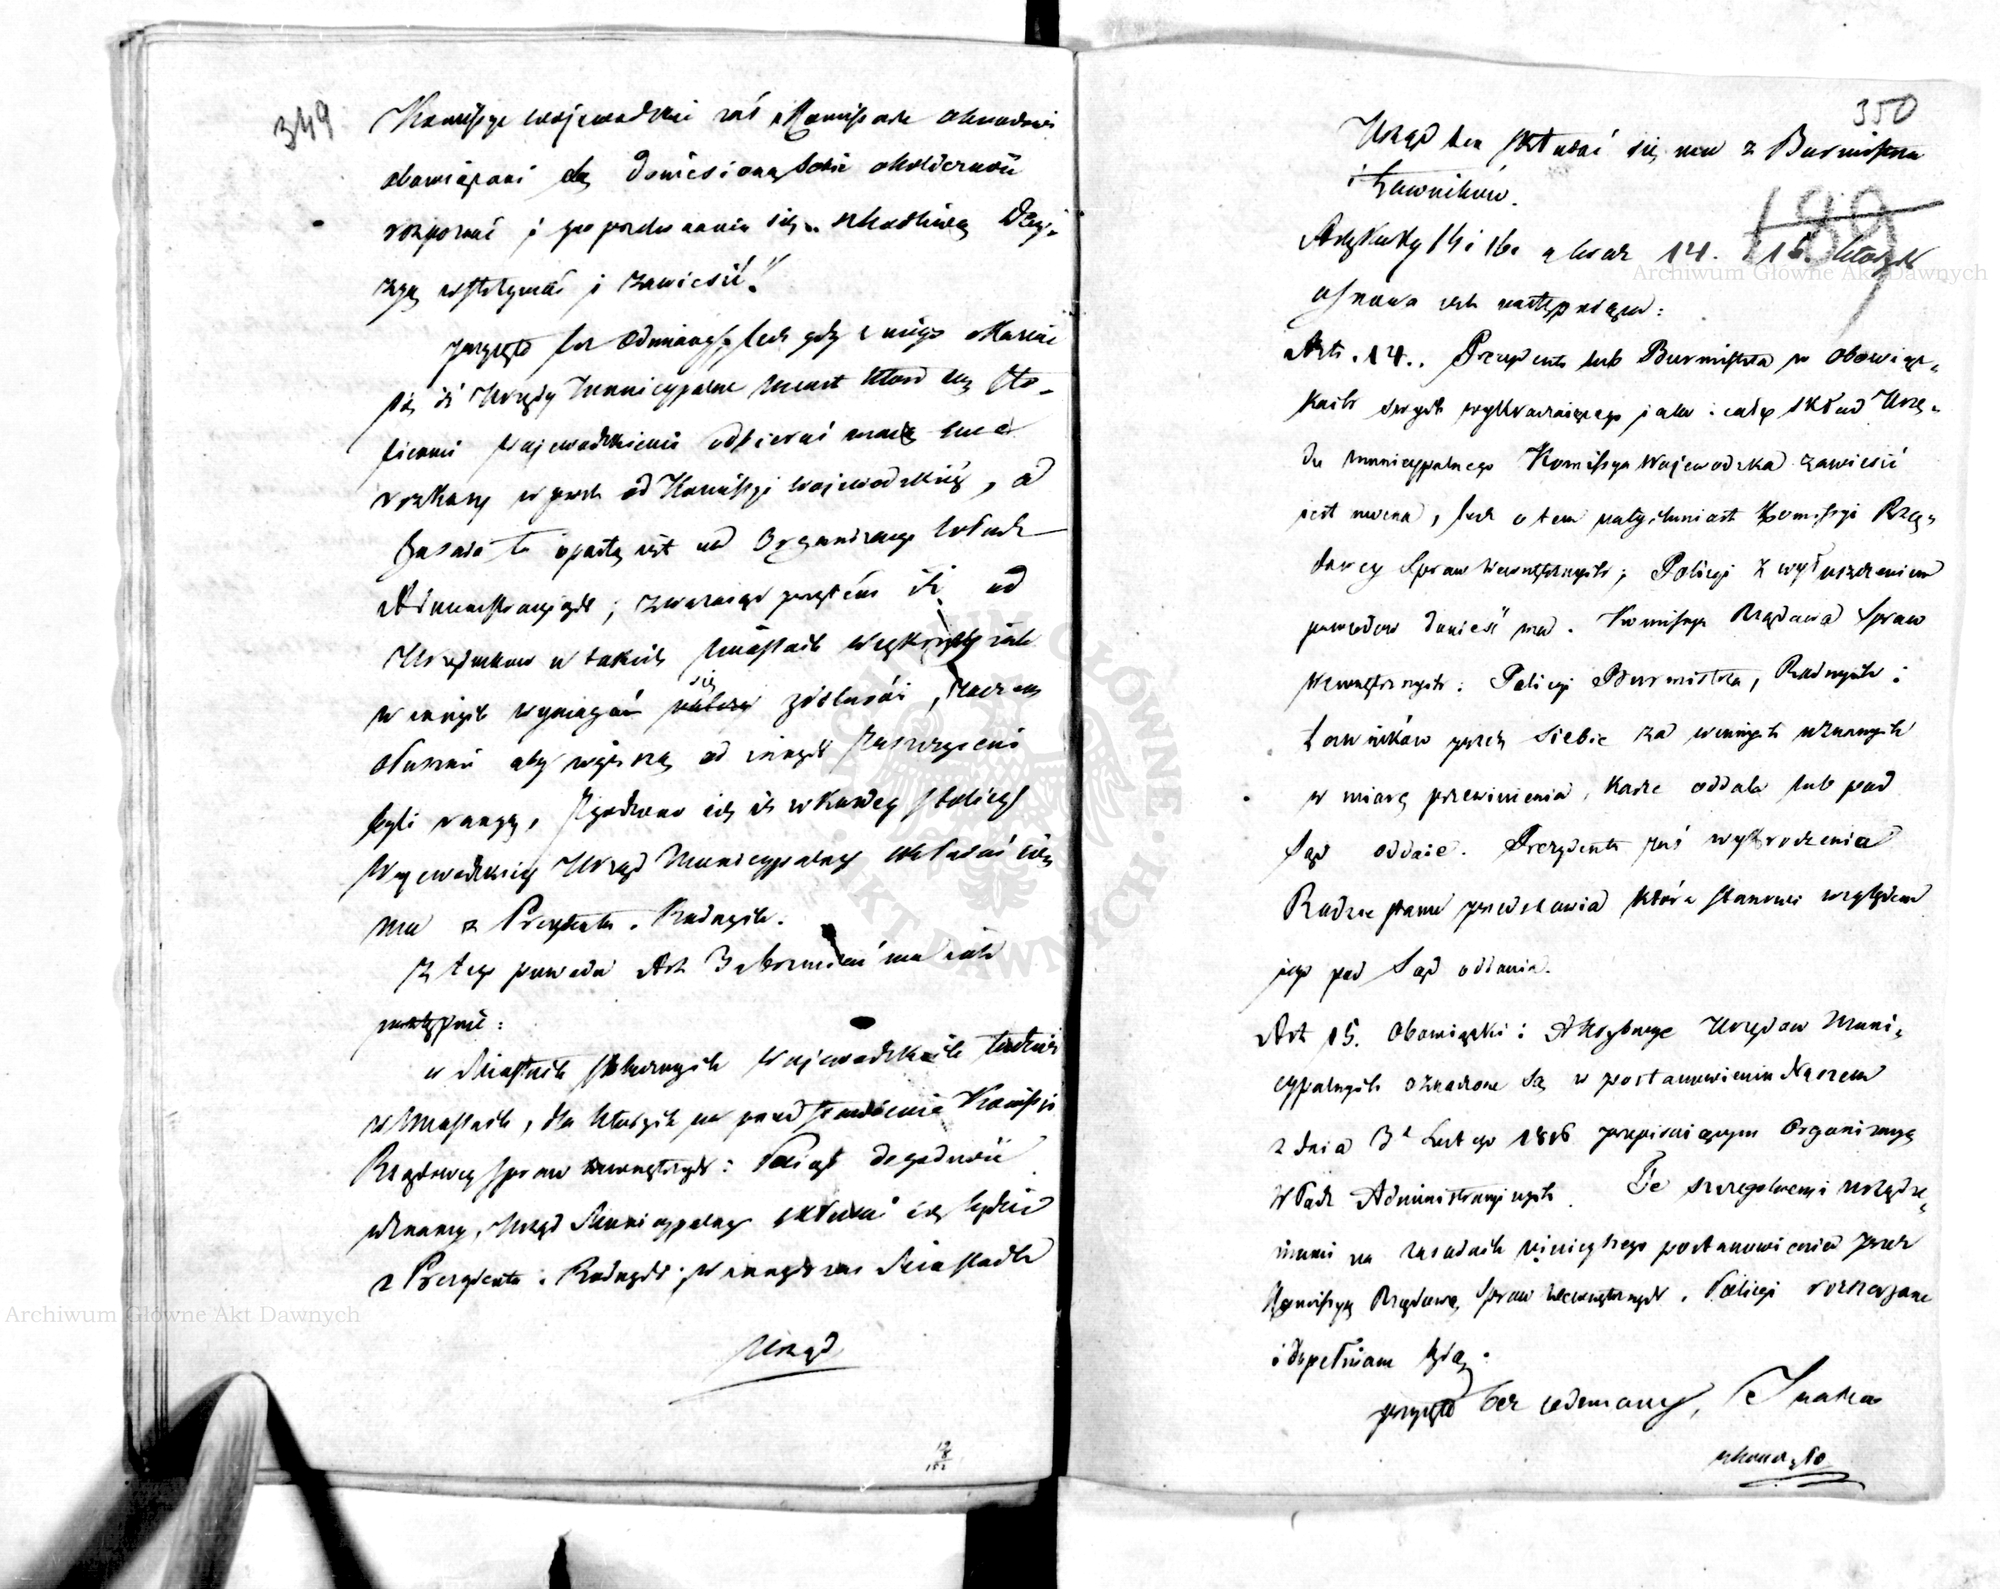 349
Komissye Wojewódzkie zaś i Komissarze obwodowi
obowiązani są doniesioną sobie okoliczność
rozpoznać i
wstrzymać i zawiesić."
przyjęto bez odmiany, lecz gdy z niego okazuie
się iż Urzędy Municypalne miast które są sto-
licami Wojewódzkiemi odbierać maią
rozkazy wprost od Komissyi Wojewódzkiéy, a
zasada ta oparta iest na Organizacyi Władz
Administracyinych; zważaiąc przytém iż od
Urzędników w takich Miastach większych iak
w innych wymagać się zdolności,
słuszna aby wyższą od innych zaszczyceni
byli rangą, zgodzono się iż w każdey stolicy
Wojewódzkiey Urząd Municypalny składać się
ma z Prezydenta i Radnych.
Z tego powodu Art 3 brzmieć ma iak
następuie:
w Miastach stołecznych Wojewódzkich tudzież
w Miastach, dla których na przedstawienie Komissyi
Rządowey Spraw Wewnętrznych i Policyi dogodność
uznamy, Urząd Municypalny składać się będzie
z Prezydenta i Radnych; w innych zaś Miastach
Urząd
350
Urząd ten składać się ma z Burmistrza
i Ławników.
189
Artykuły 14 i 15. a teraz 14. i 15. których
osnowa iest następuiąca:
Art. 14. Prezydenta lub Burmistrza w obowiąz-
kach swych wykraczaiącego iako i cały skład Urzę-
du municypalnego Komissya Wojewódzka zawiesić
iest mocna, lecz o tem natychmiast Komissyi Rzą-
dowey Spraw Wewnętrznych i Policyi z wyłuszczeniem
powodów donieść ma. Komissya Rządowa Spraw
Wewnętrznych i Policyi Burmistrza, Radnych i
Ławników przez siebie za winnych uznanych
w miarę przewinienia, karze oddala lub pod
Sąd oddaie. Prezydenta zaś wykroczenia
Radzie Stanu przedstawia która stanowi względem
iego pod Sąd oddania.
Art 15. Obowiązki i Attrybucye Urzędów Muni-
cypalnych oznaczone są w postanowieniu Naszem
z dnia 3o Lutego 1816 przepisuiącym Organizacyą
Władz Administracyinych. Te szczególnemi urządze-
niami na zasadach ninieyszego postanowienia przez
Komissyą Rządową Spraw Wewnętrznych i Policyi rozwinięte
i dopełniane będą.
przyjęto bez odmiany,